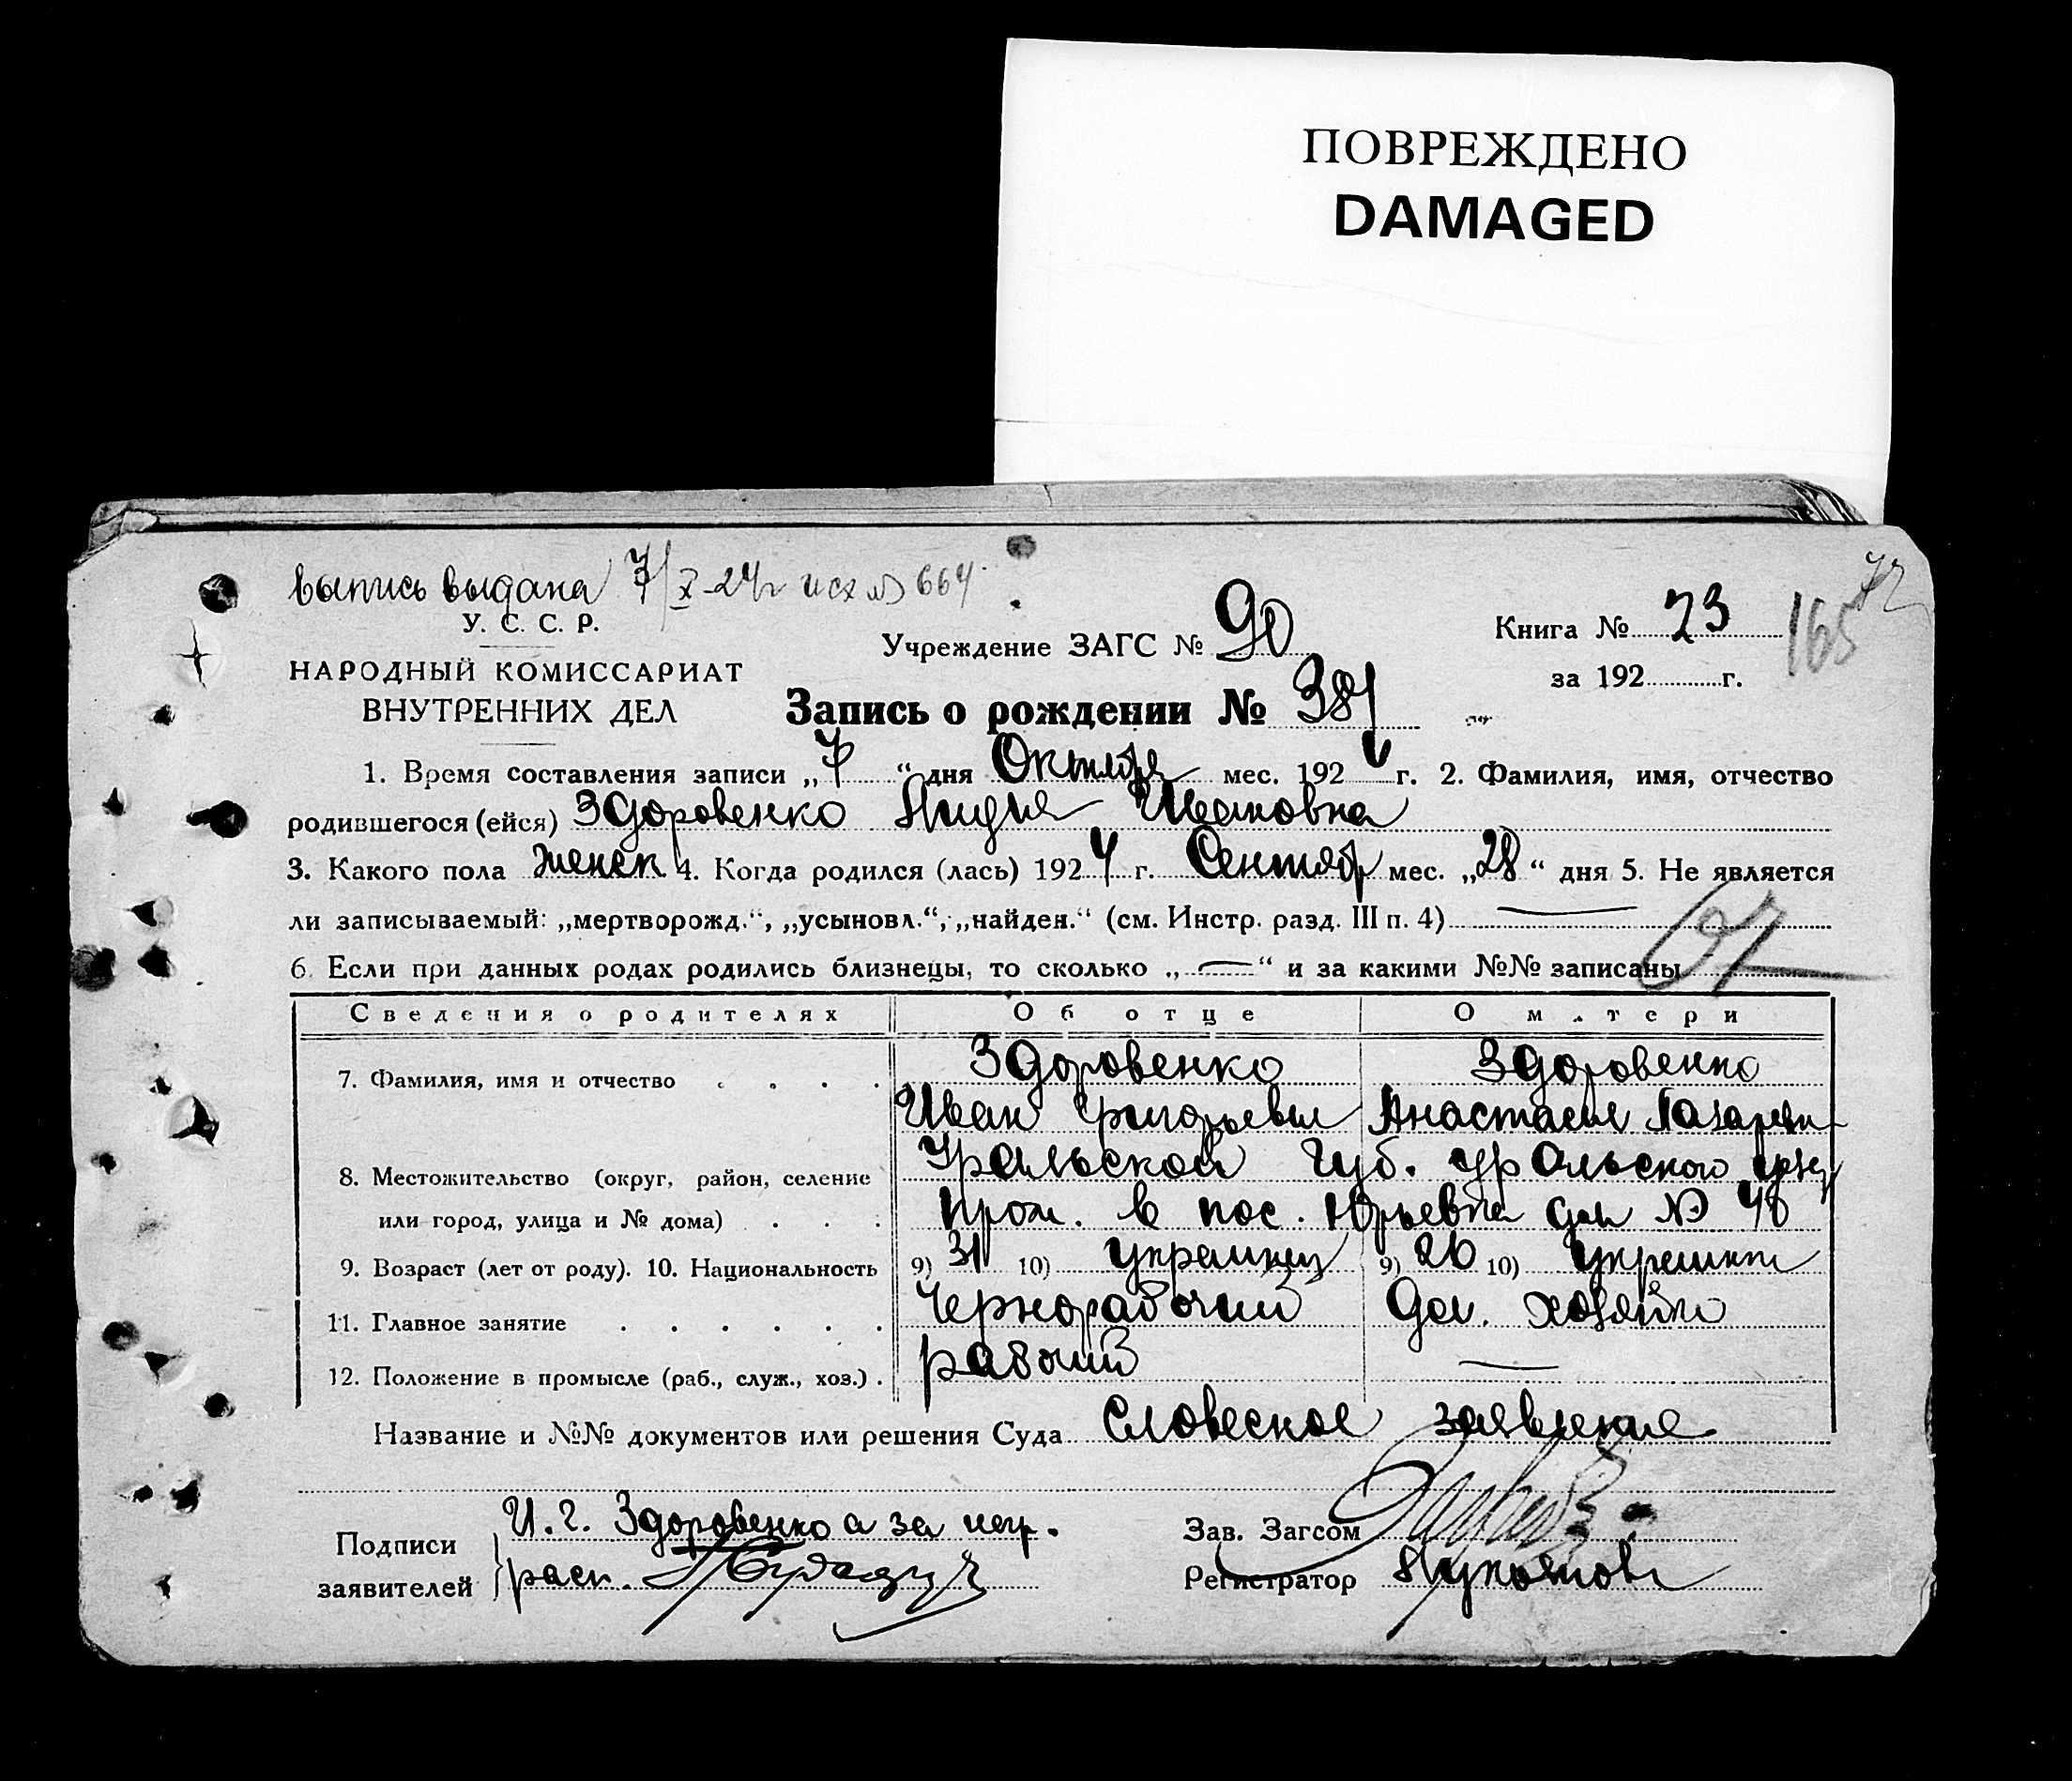 ПОВРЕЖДЕНО
DAMAGED
72
выпись выдана 7/X-24г исх № 664
165
У. С. С. Р.
НАРОДНЫЙ КОМИССАРИАТ
ВНУТРЕННИХ ДЕЛ
Учреждение ЗАГС № 90
Книга № 23
за 192 г.
Запись о рождении № 381
1. Время составления записи „7“ дня Октября мес. 1924 г. 2. Фамилия, имя, отчество
родившегося (ейся) Здоровенко Лидия Ивановна
3. Какого пола женск 4. Когда родился (лась) 1924 г. Сентяб мес. „28“ дня 5. Не является
ли записываемый: „мертворожд.“, „усыновл.“, „найден.“ (см. Инстр. разд. III п. 4) —
6. Если при данных родах родились близнецы, то сколько „—“ и за какими №№ записаны
Сведения о родителях Об отце О матери
7. Фамилия, имя и отчество Здоровенко Здоровенко
Иван Григорьевич Анастасия Лазаревн
8. Местожительство (округ, район, селение Уральской Губ. Уральского уезд
или город, улица и № дома) прож. в пос. Юрьевка дом № 48
9. Возраст (лет от роду). 10. Национальность 9) 31 10) украинец 9) 26 10) украинка
11. Главное занятие Чернорабочий Дом. хозяйка
12. Положение в промысле (раб., служ., хоз.) рабочий —
Название и №№ документов или решения Суда Словесное заявление
Подписи заявителей И. Г. Здоровенко а за негр.
расп.
Зав. Загсом
Регистратор